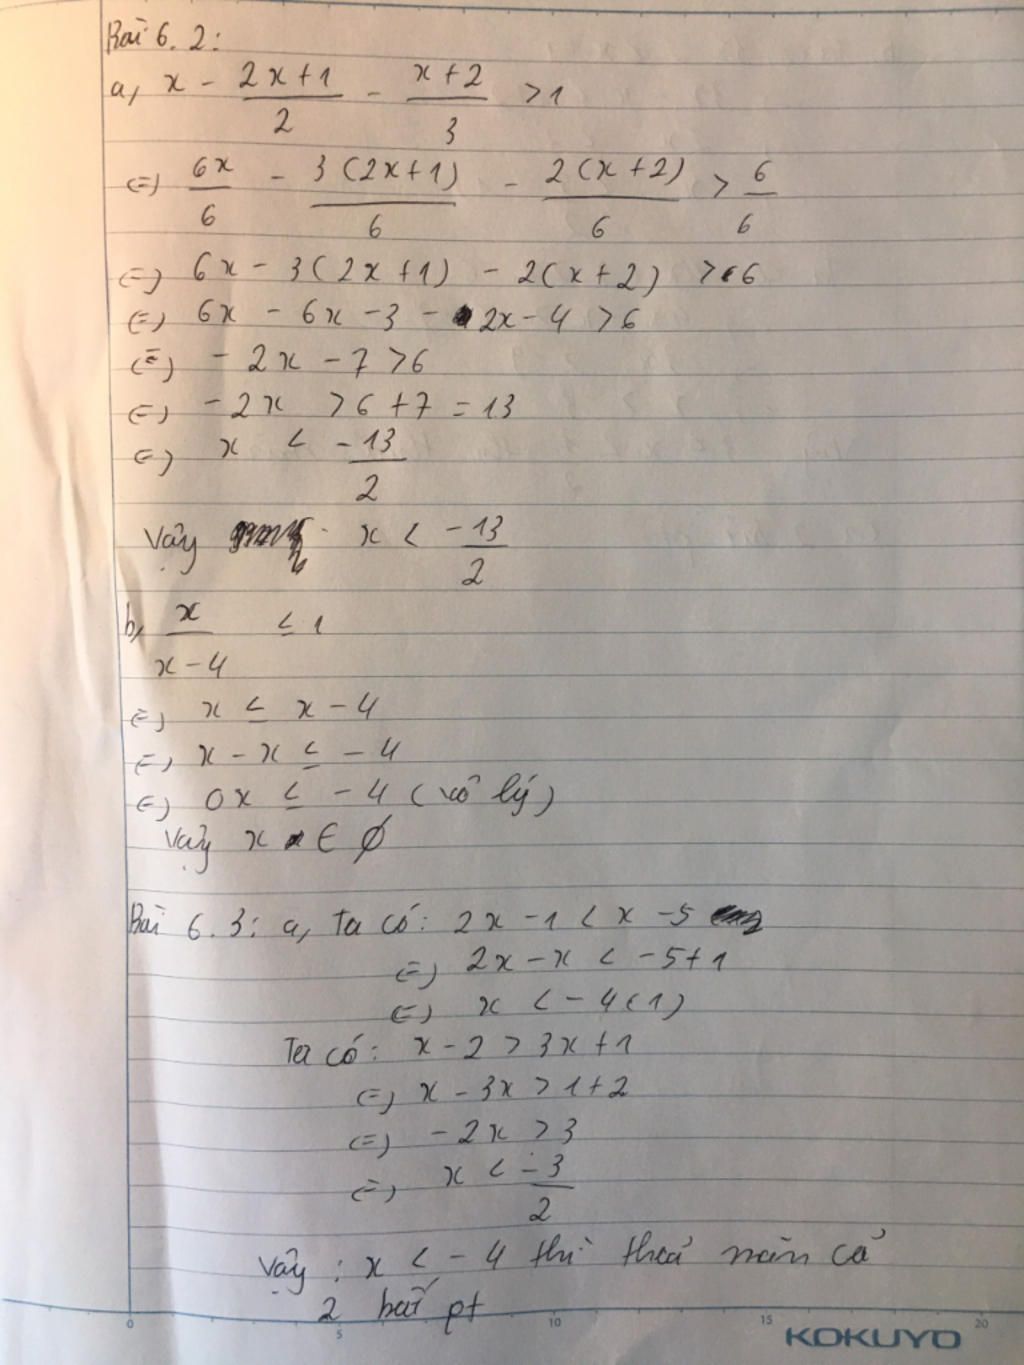 Bài 6.2:
a, x - (2x+1)/2 - (x+2)/3 > 1
(=) 6x/6 - 3(2x+1)/6 - 2(x+2)/6 > 6/6
(=) 6x - 3(2x+1) - 2(x+2) > 6
(=) 6x - 6x - 3 - 2x - 4 > 6
(=) -2x - 7 > 6
(=) -2x > 6+7 = 13
(=) x < -13/2
Vậy x < -13/2
b, x/(x-4) ≤ 1
(=) x ≤ x - 4
(=) x - x ≤ -4
(=) 0x ≤ -4 (vô lý)
Vậy x ∈ ∅
Bài 6.3: a, Ta có: 2x - 1 < x - 5
(=) 2x - x < -5+1
(=) x < -4 (1)
Ta có: x - 2 > 3x + 1
(=) x - 3x > 1+2
(=) -2x > 3
(=) x < -3/2
Vậy: x < -4 thì thoả mãn cả
2 bất pt
0 5 10 15 20
KOKUYO